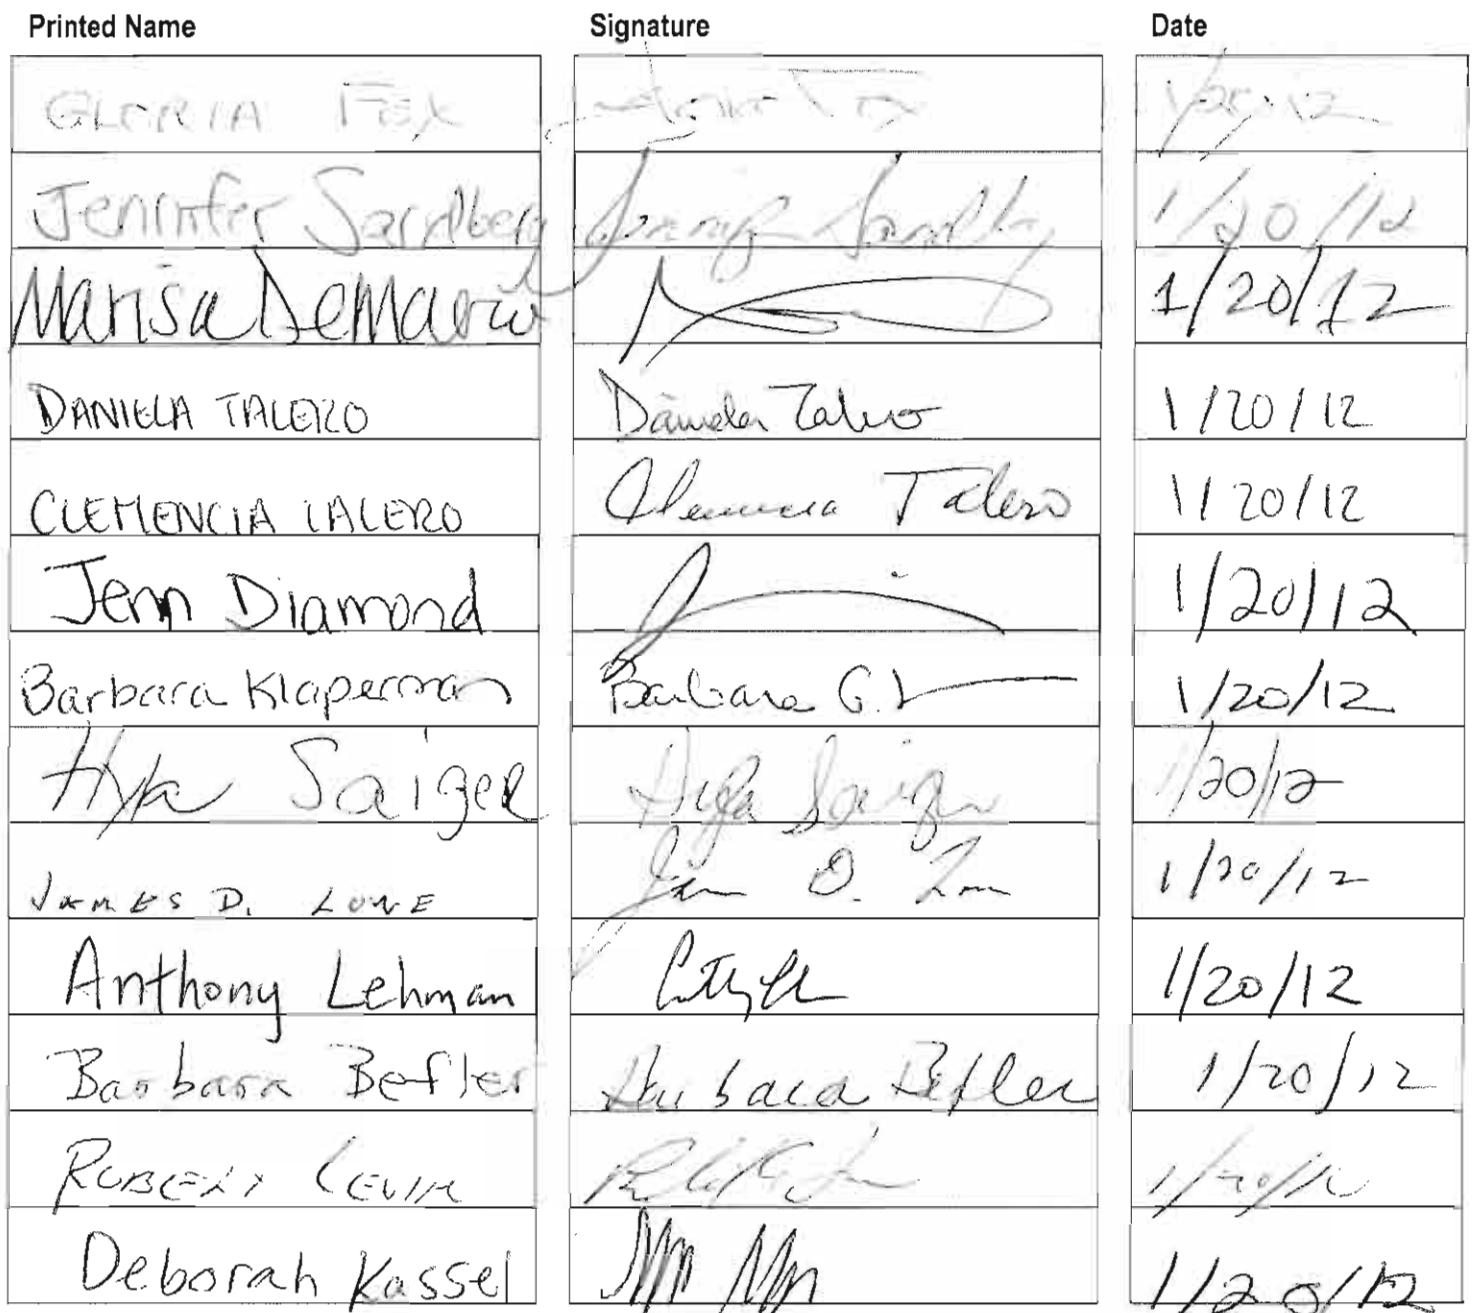 Printed Name Signature Date
GLORIA FOX Gloria Fox 1/20/12
Jennifer Sandberg Jennifer Sandberg 1/20/12
Marisa DeMarco 1/20/12
DANIELA TALERO Daniela Talero 1/20/12
CLEMENCIA TALERO Clemencia Talero 1/20/12
Jenn Diamond 1/20/12
Barbara Klaperman Barbara G. 1/20/12
Hyla Saiger Hyla Saiger 1/20/12
JAMES D. LOWE 1/20/12
Anthony Lehman 1/20/12
Barbara Befler Barbara Befler 1/20/12
ROBERT LEVIN 1/20/12
Deborah Kassel 1/20/12